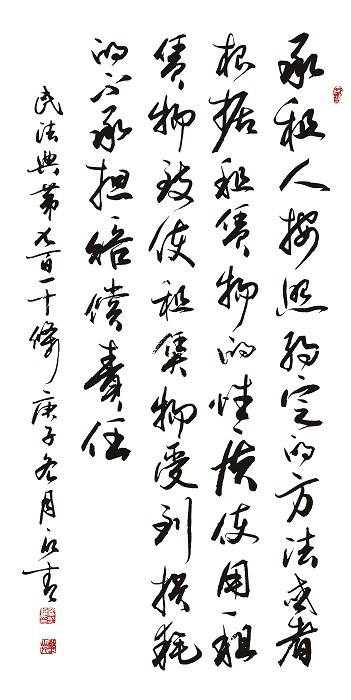 承租人按照约定的方法或者
根据租赁物的性质使用租
赁物致使租赁物受到损耗
的不承担赔偿责任
民法典第七百一十條 庚子冬月